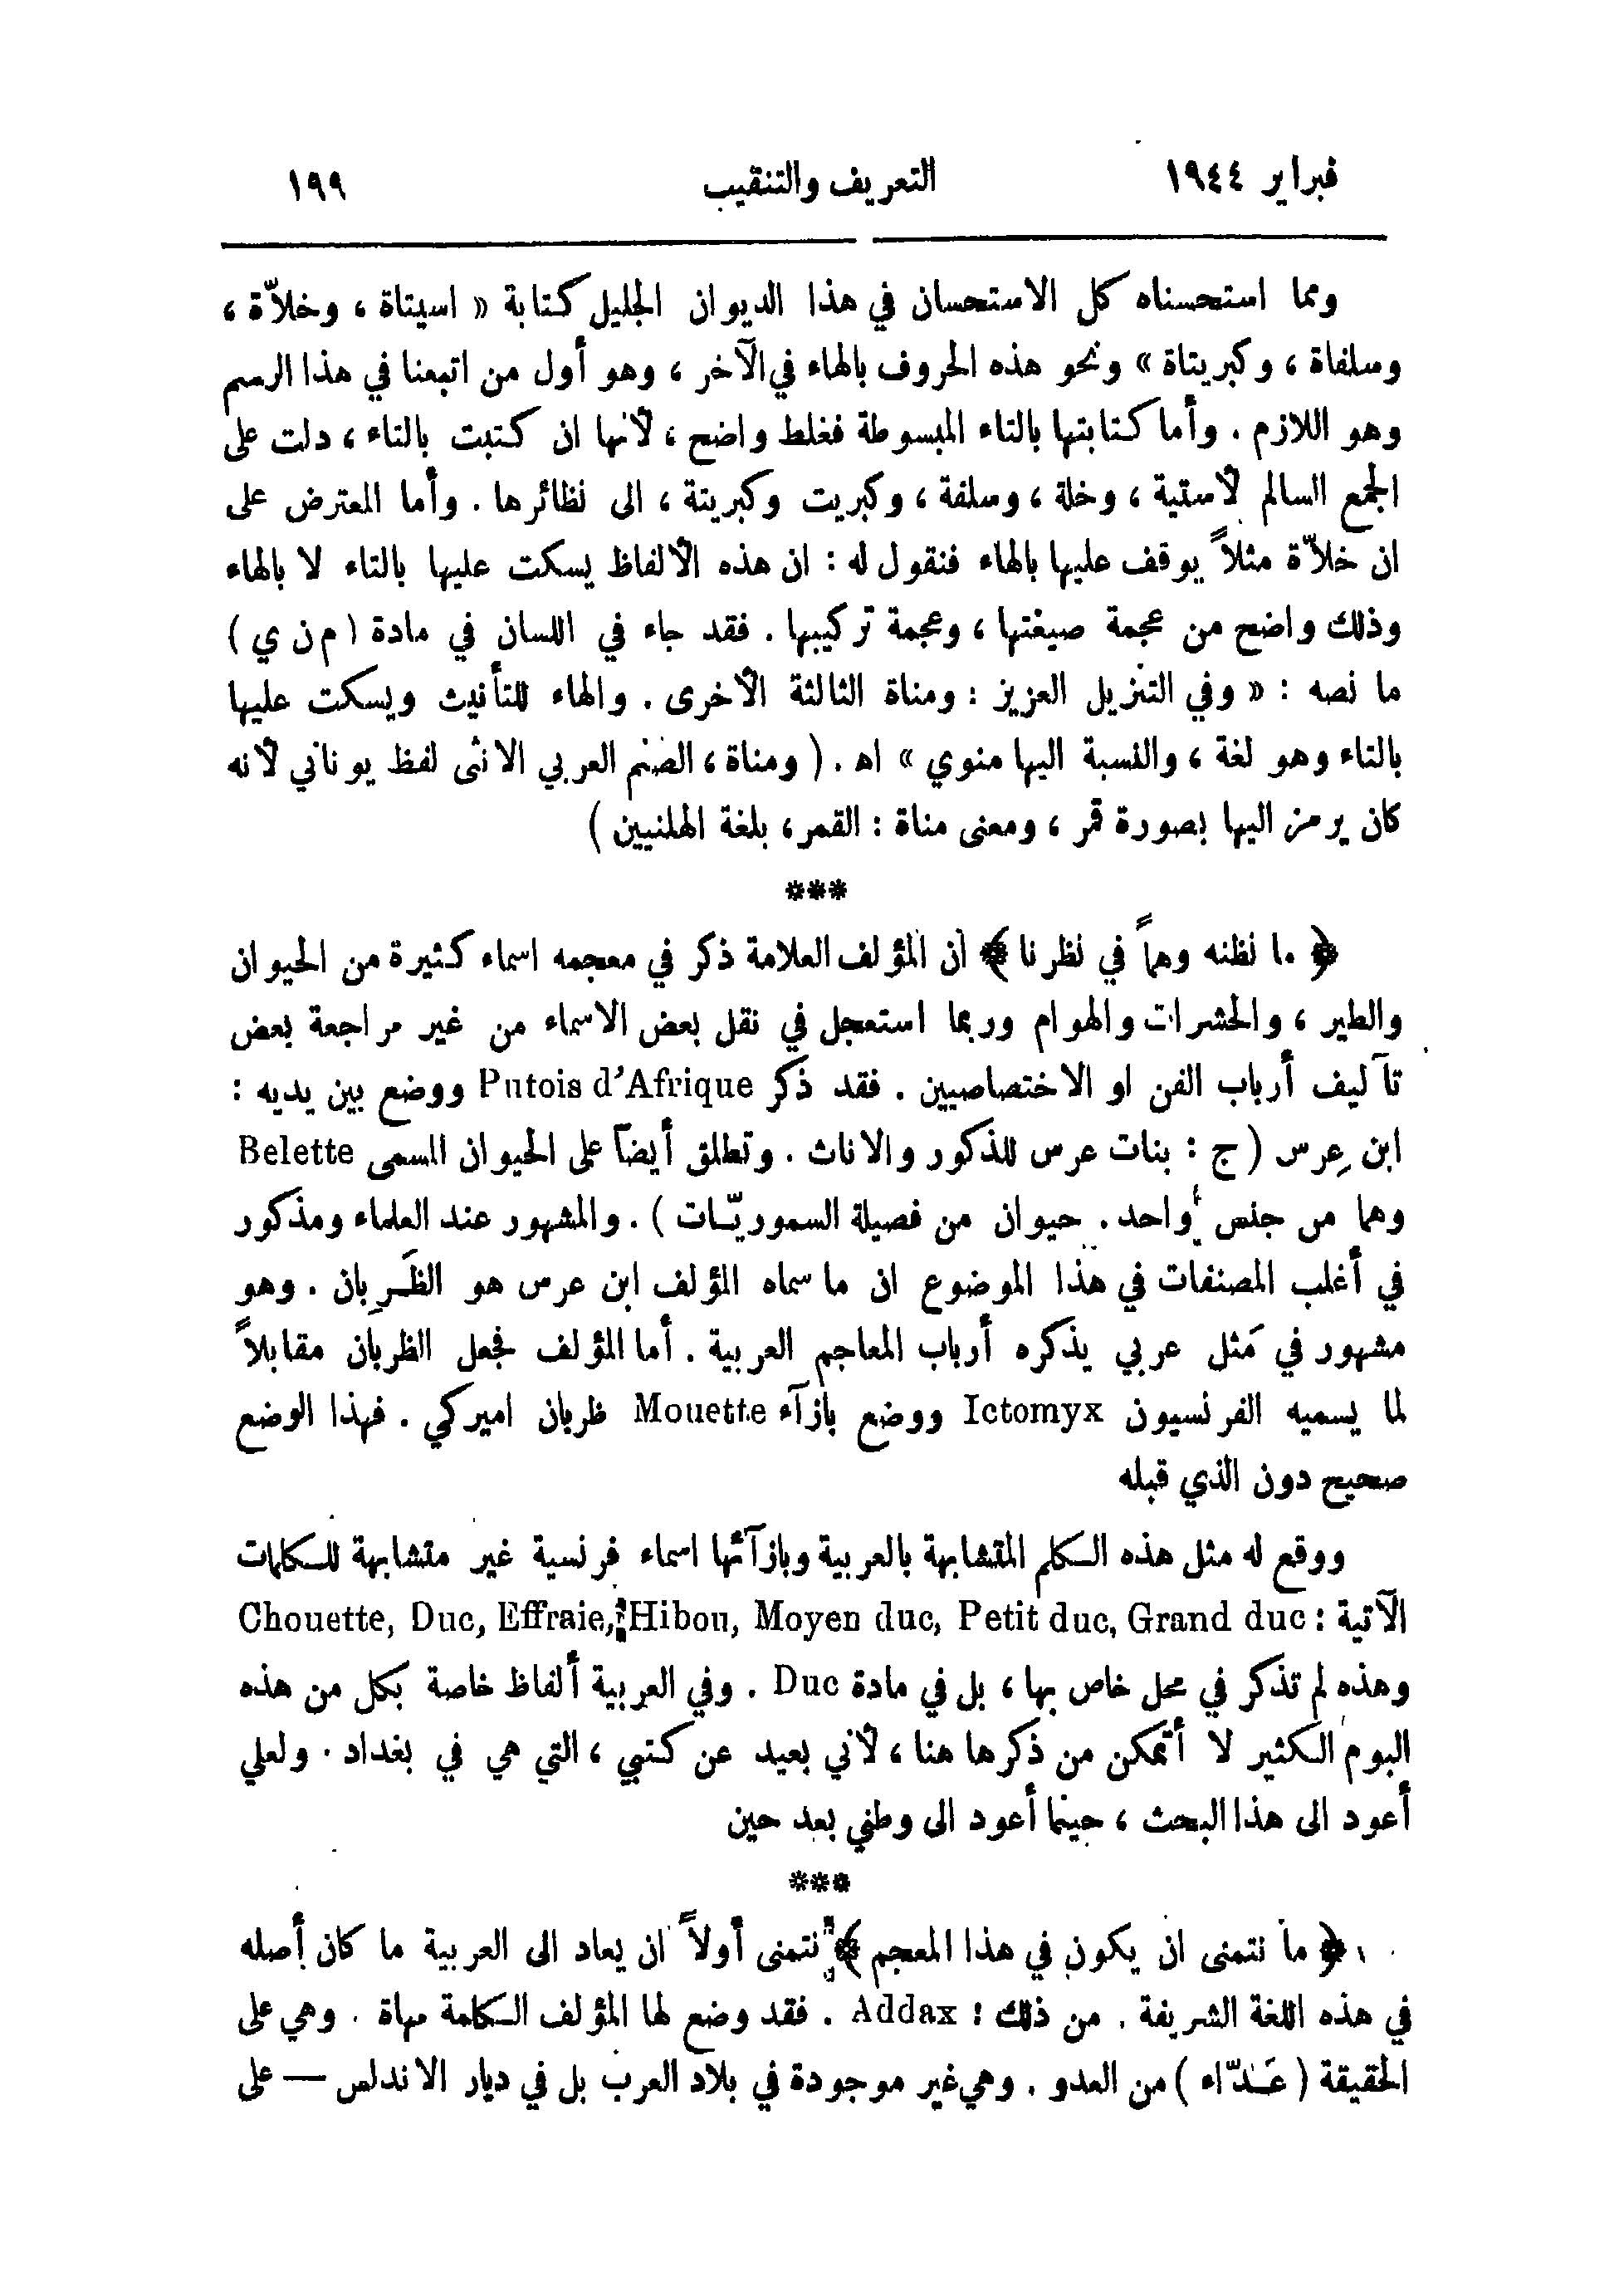 فبراير ١٩٤٤ التعريف والتنقيب ١٩٩
ومما استحسناه كل الاستحسان في هذا الديوان الجليل كتابة « اسيتاة ، وخلاّة ،
وسلفاة ، وكبريتاة » ونحو هذه الحروف بالهاء في الآخر ، وهو أول من اتبعنا في هذا الرسم
وهو اللازم . وأما كتابتها بالتاء المبسوطة فغلط واضح ، لأنها ان كتبت بالتاء ، دلت على
الجمع السالم لأستية ، وخلة ، وسلفة ، وكبريت وكبريتة ، الى نظائرها . وأما المعترض على
ان خلاّة مثلاً يوقف عليها بالهاء فنقول له : ان هذه الألفاظ يسكت عليها بالتاء لا بالهاء
وذلك واضح من عجمة صيغتها ، وعجمة تركيبها . فقد جاء في اللسان في مادة ( م ن ي )
ما نصه : « وفي التنزيل العزيز : ومناة الثالثة الأخرى . والهاء للتأنيث ويسكت عليها
بالتاء وهو لغة ، والنسبة اليها منوي » اه . ( ومناة ، الصنم العربي الانثى لفظ يوناني لأنه
كان يرمز اليها بصورة قمر ، ومعنى مناة : القمر ، بلغة الهلنيين )
***
﴿ ما نظنه وهماً في نظرنا ﴾ ان المؤلف العلامة ذكر في معجمه اسماء كثيرة من الحيوان
والطير ، والحشرات والهوام وربما استعجل في نقل بعض الاسماء من غير مراجعة بعض
تآليف أرباب الفن او الاختصاصيين . فقد ذكر Putois d'Afrique ووضع بين يديه :
ابن عِرس ( ج : بنات عرس للذكور والاناث . وتطلق أيضاً على الحيوان المسمى Belette
وهما من جنس واحد . حيوان من فصيلة السموريّات ) . والمشهور عند العلماء ومذكور
في أغلب المصنفات في هذا الموضوع ان ما سماه المؤلف ابن عرس هو الظَرِبان . وهو
مشهور في مَثل عربي يذكره أرباب المعاجم العربية . أما المؤلف فجعل الظربان مقابلاً
لما يسميه الفرنسيون Ictomyx ووضع بازآء Mouette ظربان اميركي . فهذا الوضع
صحيح دون الذي قبله
ووقع له مثل هذه الكلم المتشابهة بالعربية وبازآئها اسماء فرنسية غير متشابهة للكلمات
الآتية : Chouette, Duc, Effraie, Hibou, Moyen duc, Petit duc, Grand duc
وهذه لم تذكر في محل خاص بها ، بل في مادة Duc . وفي العربية ألفاظ خاصة بكل من هذه
البوم الكثير لا أتمكن من ذكرها هنا ، لأني بعيد عن كتبي ، التي هي في بغداد . ولعلي
أعود الى هذا البحث ، حينما أعود الى وطني بعد حين
***
﴿ ما نتمنى ان يكون في هذا المعجم ﴾ نتمنى أولاً ان يعاد الى العربية ما كان أصله
في هذه اللغة الشريفة . من ذلك : Addax . فقد وضع لها المؤلف الكلمة مهاة . وهي على
الحقيقة ( عَدّاء ) من العدو . وهي غير موجودة في بلاد العرب بل في ديار الاندلس — على